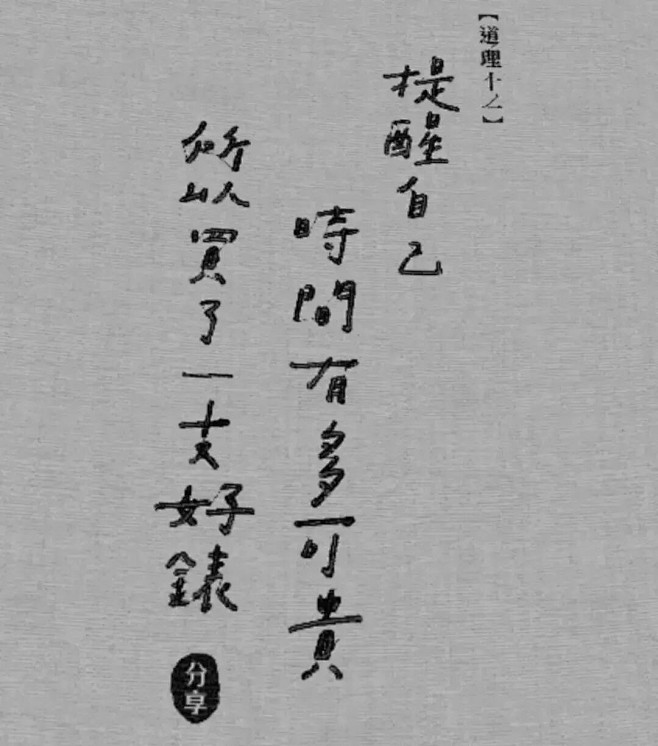 【道理十之】
提醒自己
時間有多可貴
所以買了一支好錶
分享